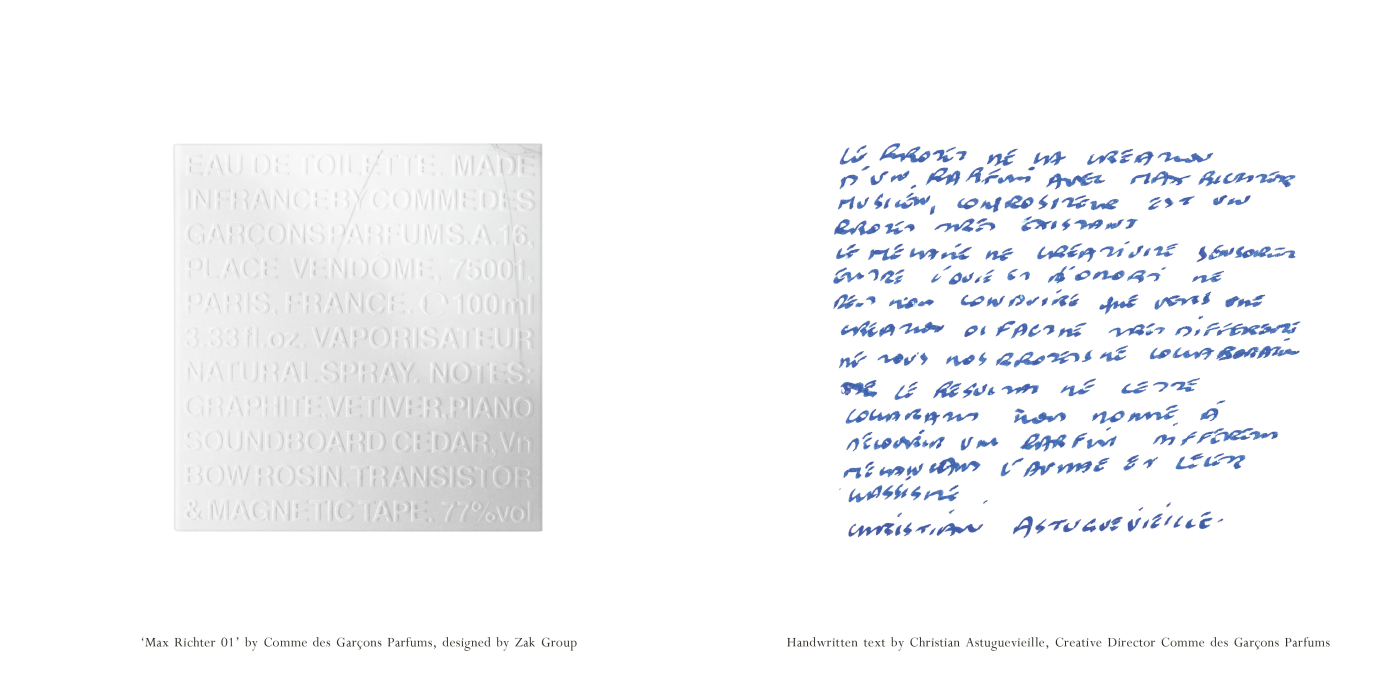 EAU DE TOILETTE MADE
IN FRANCE BY COMME DES
GARCONS PARFUMS S.A. 16,
PLACE VENDOME, 75001,
PARIS, FRANCE. 100ml
3.33 fl.oz. VAPORISATEUR
NATURAL SPRAY. NOTES:
GRAPHITE, VETIVER, PIANO
SOUNDBOARD CEDAR, Vn
BOW ROSIN, TRANSISTOR
& MAGNETIC TAPE. 77%vol
'Max Richter 01' by Comme des Garçons Parfums, designed by Zak Group
LE PROJET DE LA CREATION
D'UN PARFUM AVEC MAX RICHTER
MUSICIEN, COMPOSITEUR EST UN
PROJET TRES EXISTANT
LE MELANGE DE CREATIVITE
ENTRE L'OUIE ET DE
CONDUIRE QUE VERS UNE
CREATION OLFACTIVE TRES DIFFERENTE
DE TOUS NOS PROJETS DE
LE RESULTAT DE CETTE
NOUS DONNE A
DECOUVRIR UN PARFUM DIFFERENT
ET
CHRISTIAN ASTUGUEVIEILLE.
Handwritten text by Christian Astuguevieille, Creative Director Comme des Garçons Parfums